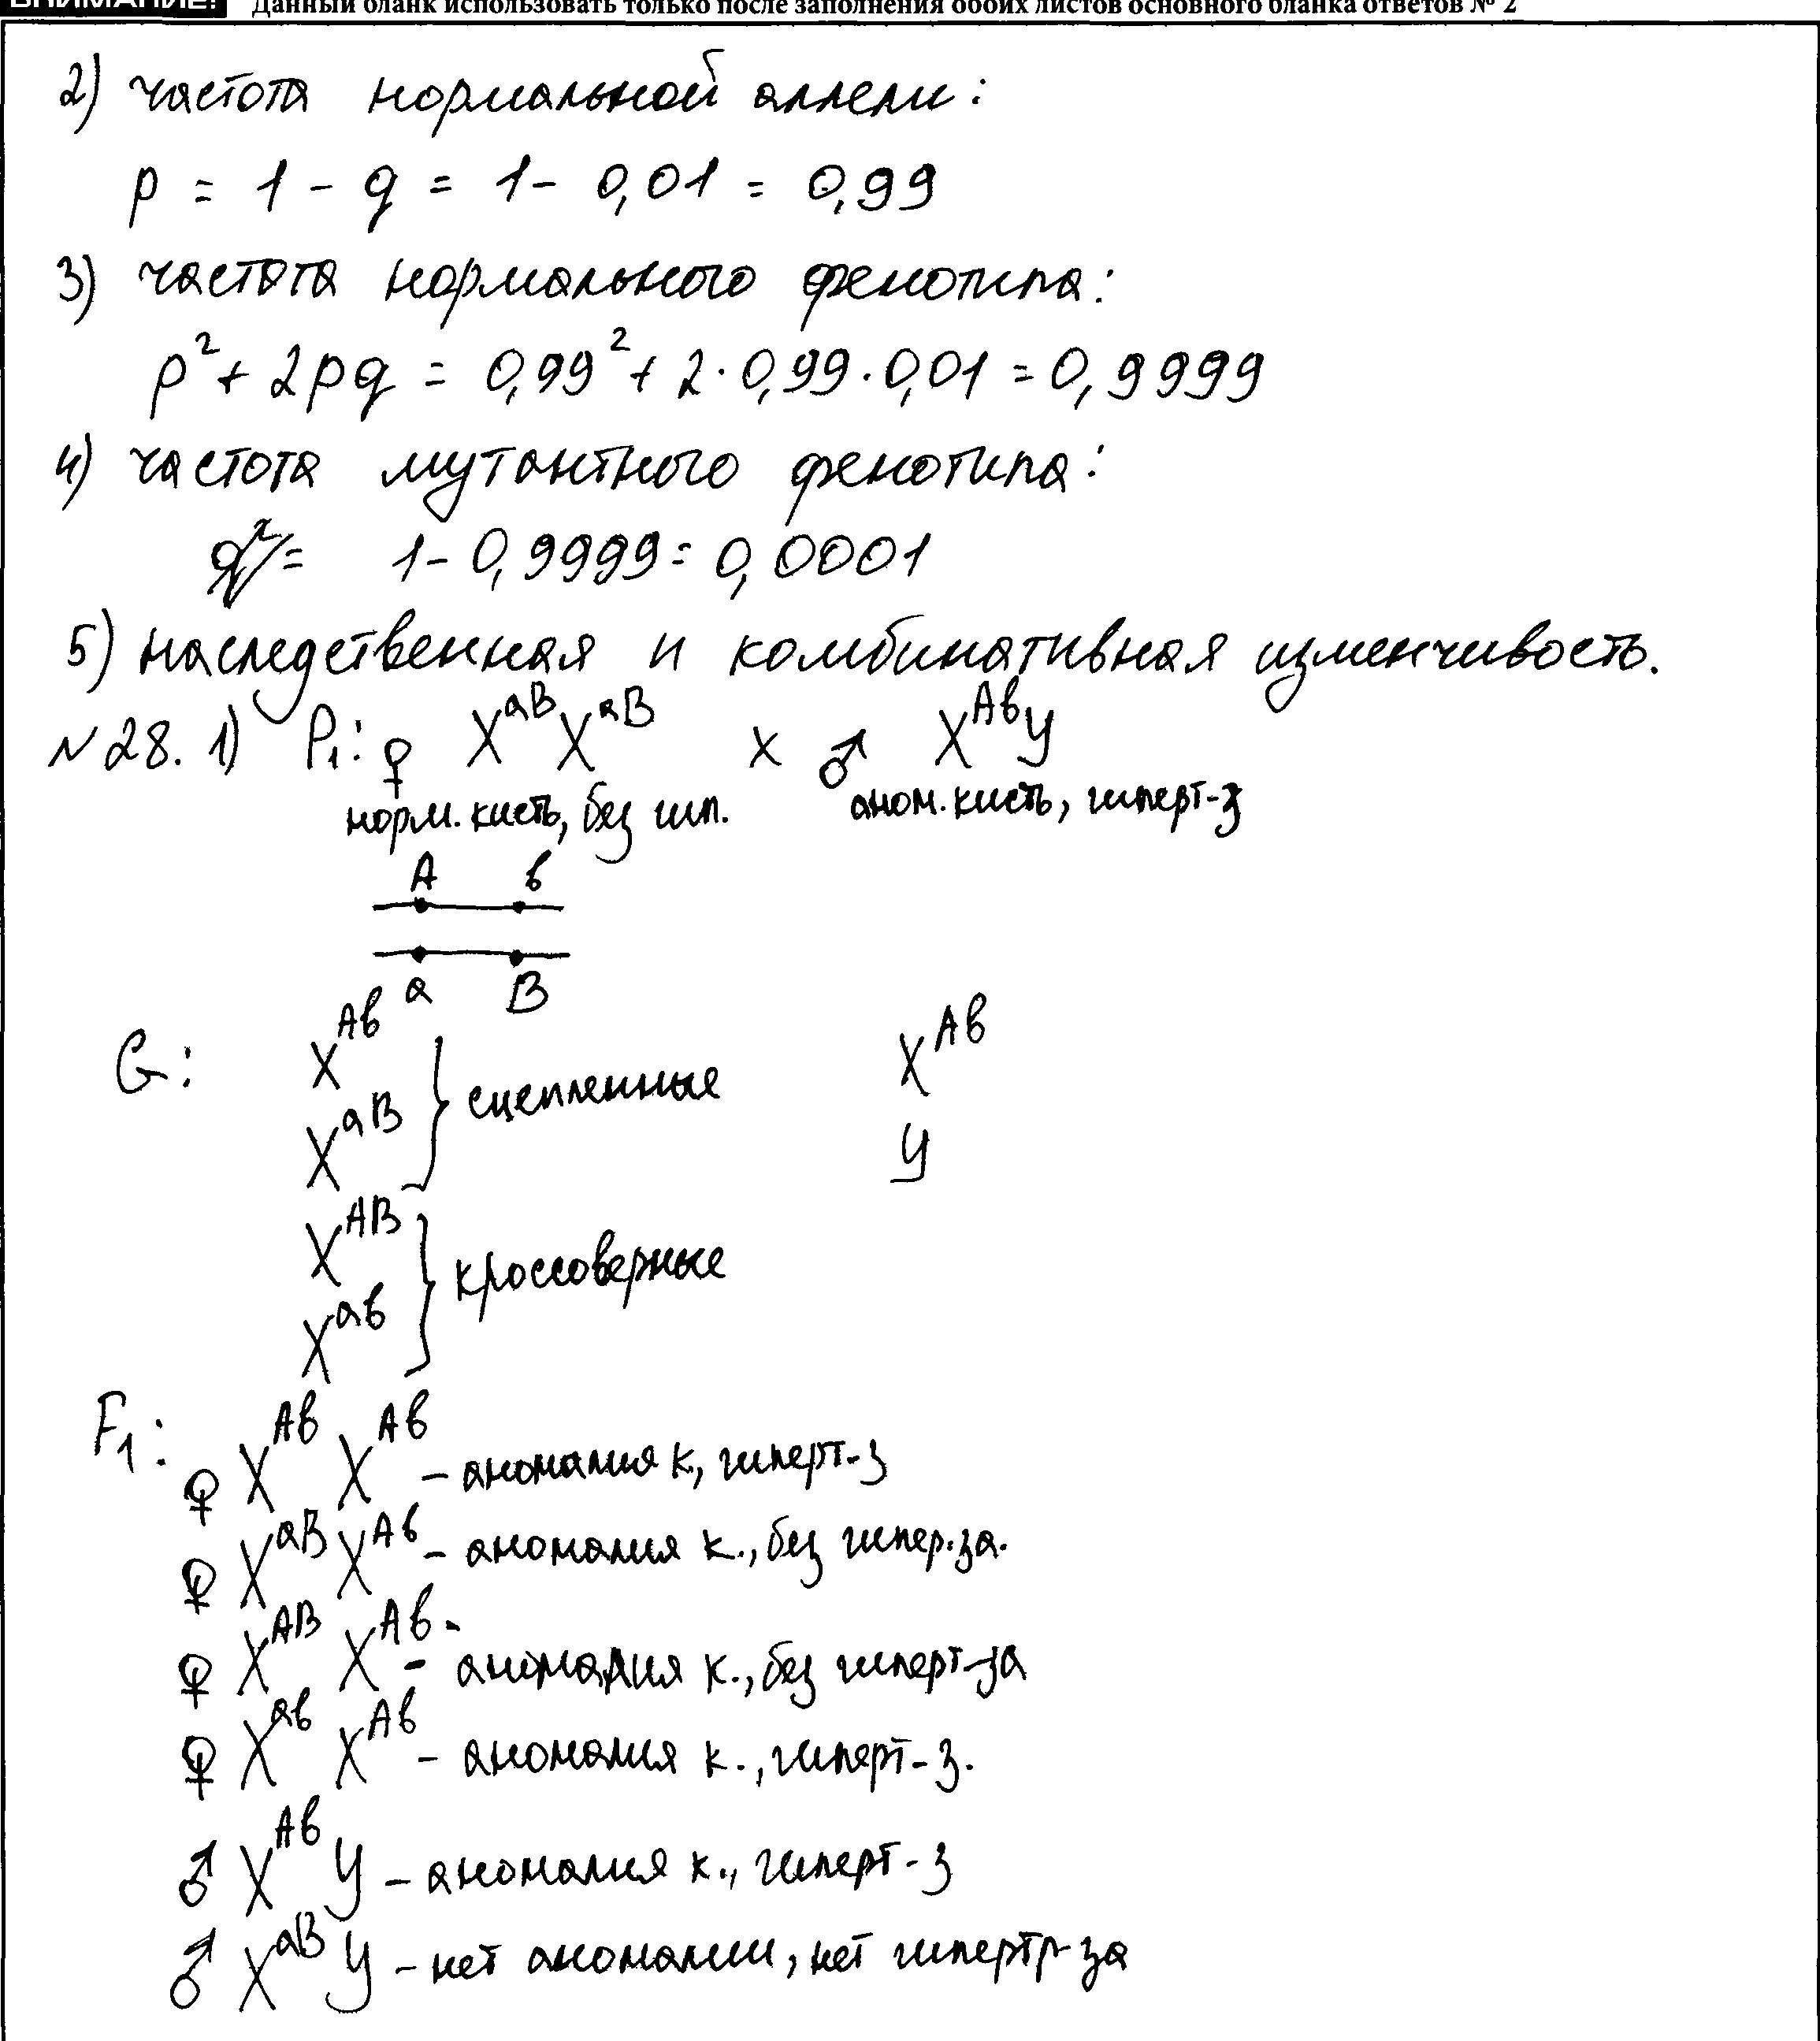 ВНИМАНИЕ! Данный бланк использовать только после заполнения обоих листов основного бланка ответов № 2
2) частота нормальной аллели:
p = 1 - q = 1 - 0,01 = 0,99
3) частота нормального фенотипа:
p² + 2pq = 0,99² + 2·0,99·0,01 = 0,9999
4) частота мутантного фенотипа:
1 - 0,9999 = 0,0001
5) наследственная и комбинативная изменчивость.
№28. 1) P₁: ♀ XᵃᴮXᵃᴮ x ♂ XᴬᵇY
норм. кисть, без гип. аном. кисть, гиперт-з
A в
a B
G: Xᴬᵇ Xᴬᵇ
Xᵃᴮ } сцепленные Y
Xᴬᴮ
Xᵃᵇ } кроссоверные
F₁: ♀ Xᴬᵇ Xᴬᵇ - аномалия к, гиперт-з
♀ Xᵃᴮ Xᴬᵇ - аномалия к., без гипер-за.
♀ Xᴬᴮ Xᴬᵇ - аномалия к., без гиперт-за
♀ Xᵃᵇ Xᴬᵇ - аномалия к., гиперт-з.
♂ Xᴬᵇ Y - аномалия к., гиперт-з
♂ Xᵃᴮ Y - нет аномалии, нет гипертр-за